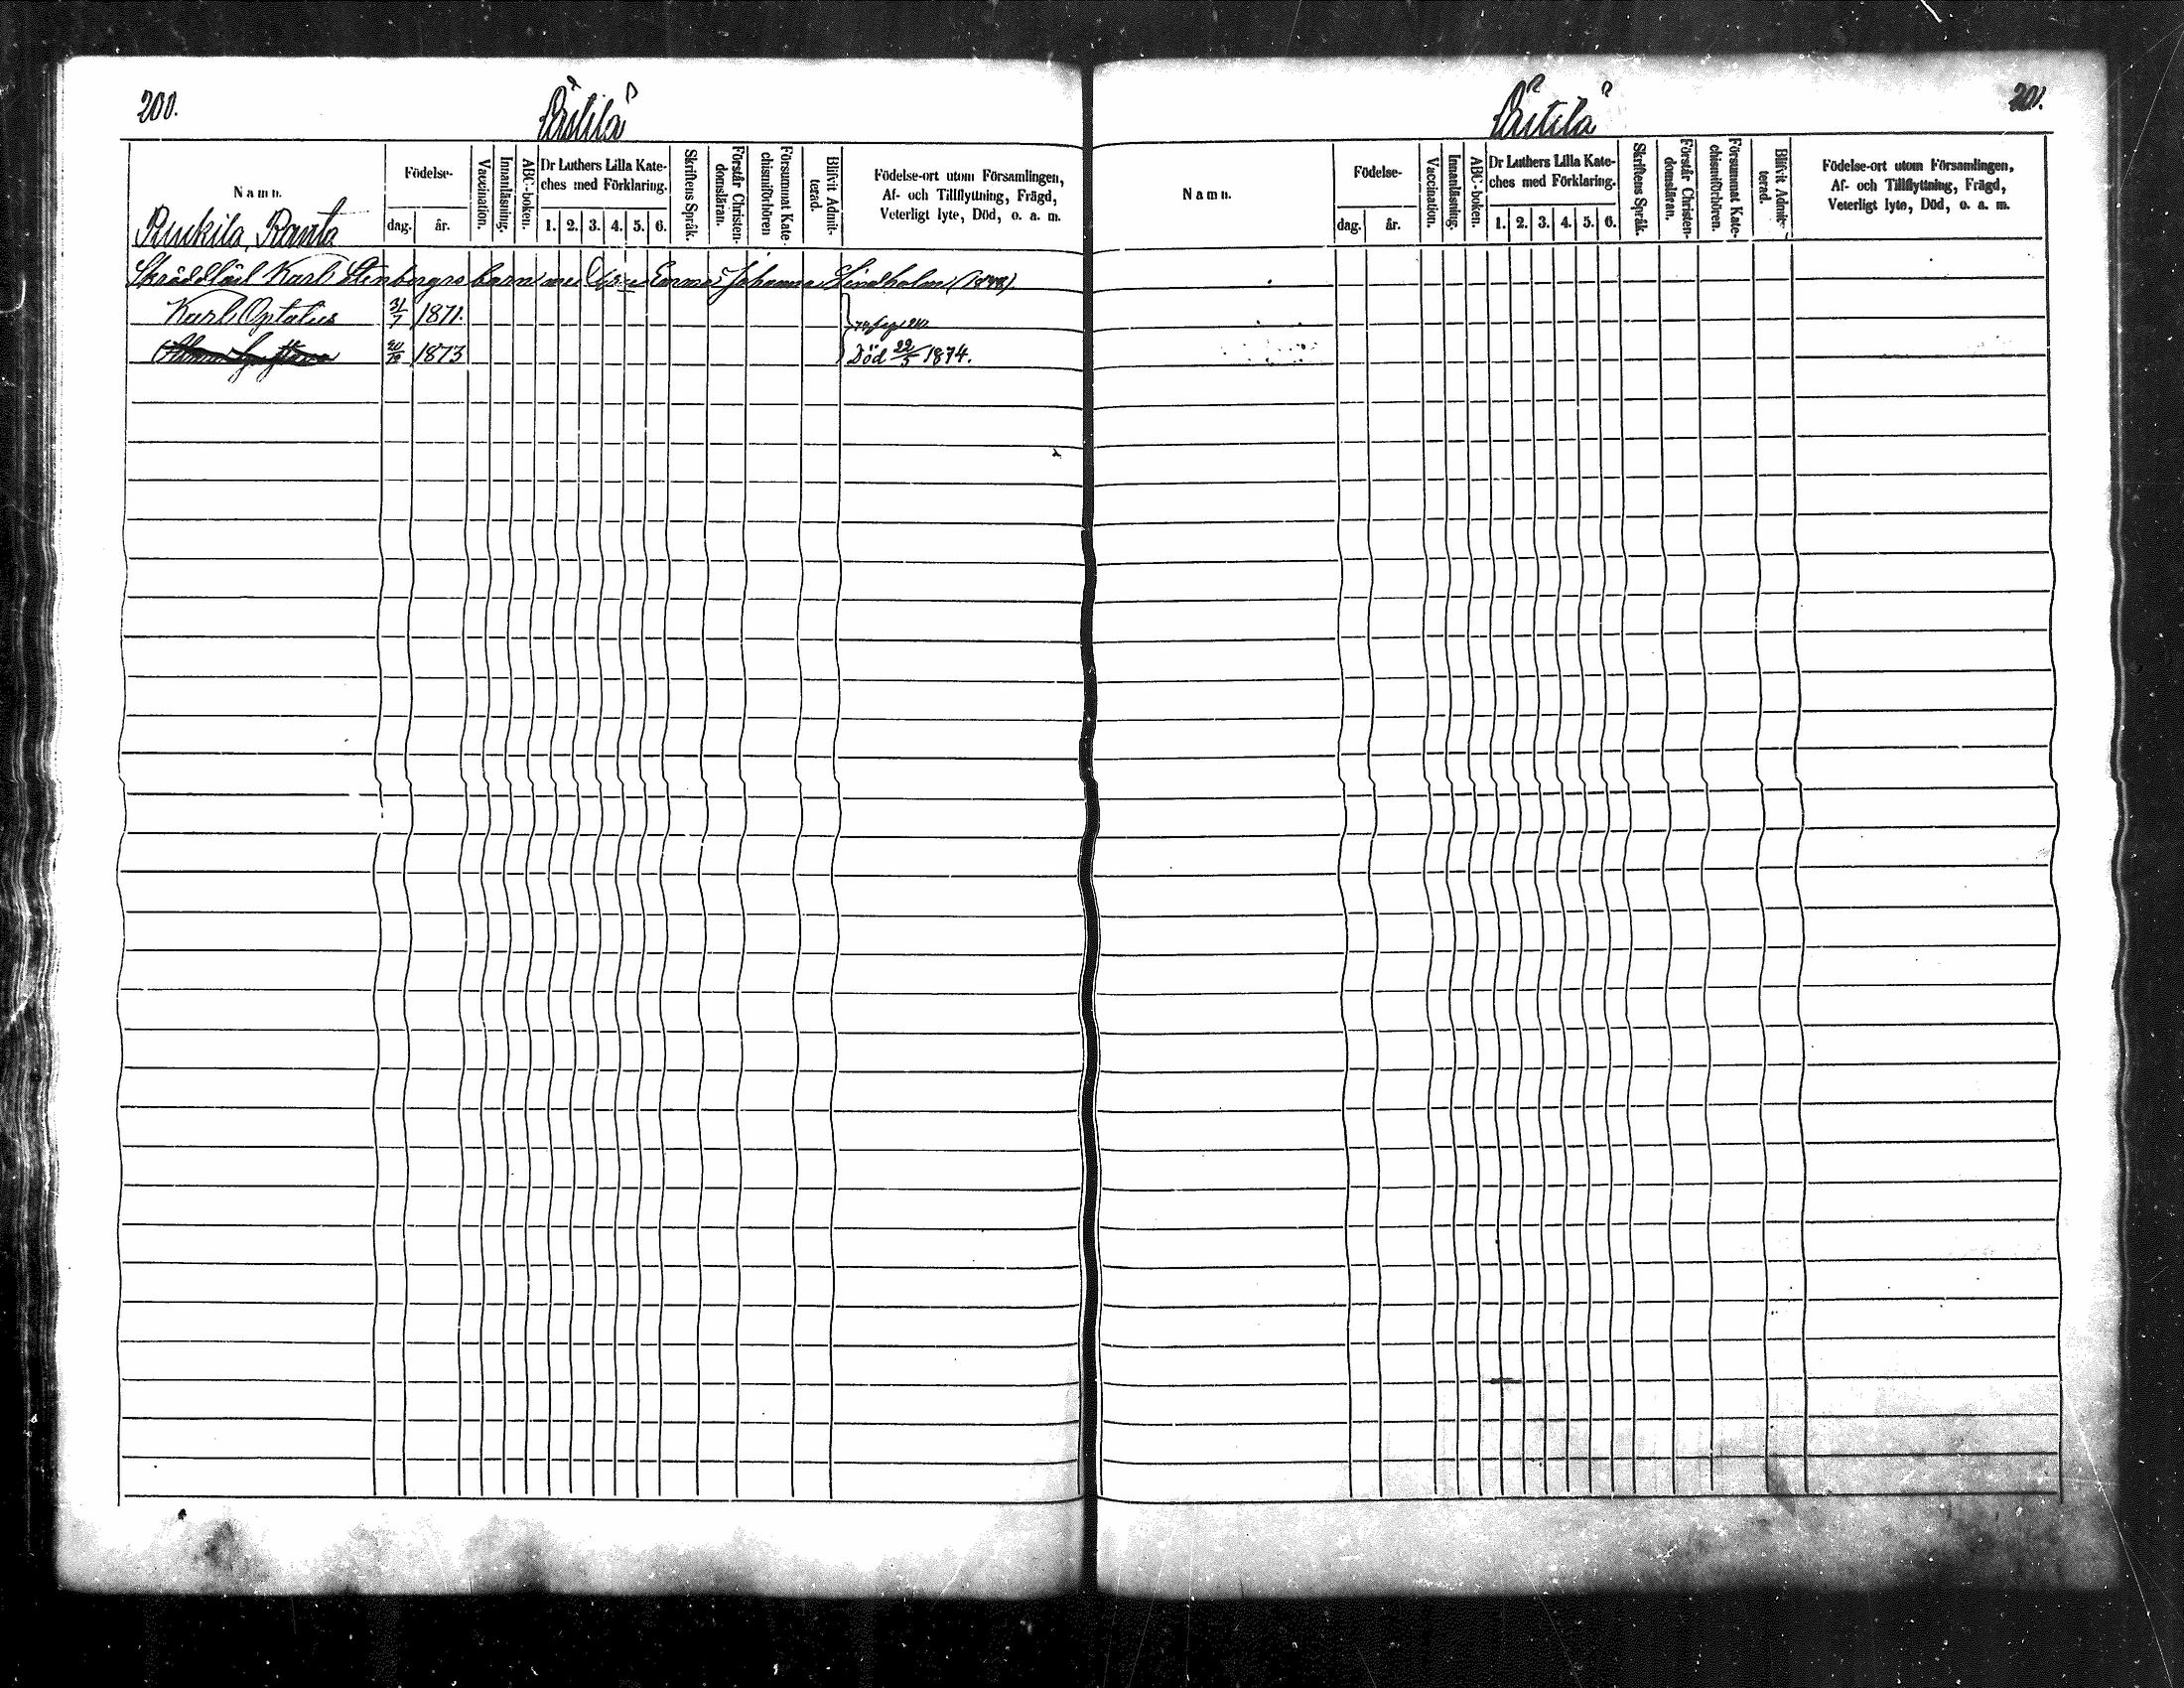 200.
Pästilä
Namn.
Födelse-
dag.
år.
Vaccination.
Innanläsning.
ABC-boken.
Dr Luthers Lilla Kate-
ches med Förklaring.
1. 2. 3. 4. 5. 6.
Skriftens Språk.
Förstår Christen-
domsläran.
Försummat Kate-
chismiförhören
Blifvit Admit-
terad.
Födelse-ort utom Församlingen,
Af- och Tillflyttning, Frägd,
Veterligt lyte, Död, o. a. m.
Ranta
Karl Stenbergs barn med Emma Johanna Lindholm
Karl Optatus 3/7 1871.
1873 Död 22/5 1874.
Pästilä
201.
Namn.
Födelse-
dag.
år.
Vaccination.
Innanläsning.
ABC-boken.
Dr Luthers Lilla Kate-
ches med Förklaring.
1. 2. 3. 4. 5. 6.
Skriftens Språk.
Förstår Christen-
domsläran.
Försummat Kate-
chismiförhören.
Blifvit Admit-
terad.
Födelse-ort utom Församlingen,
Af- och Tillflyttning, Frägd,
Veterligt lyte, Död, o. a. m.